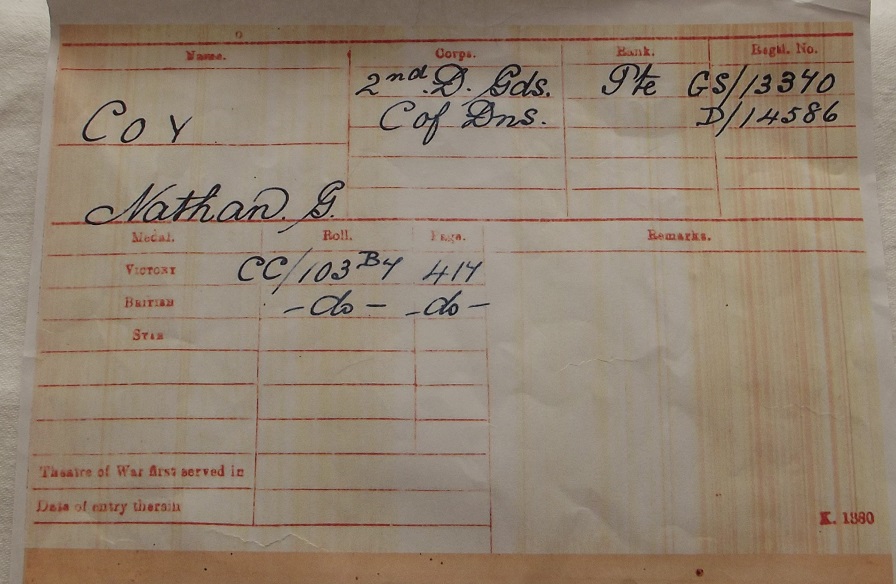 Name. Corps. Rank. Regtl. No.
2nd D. Gds. Pte GS/13340
Cox C of Dns. D/14586
Nathan. G.
Medal. Roll. Page. Remarks.
VICTORY CC/103 B4 414
BRITISH -do- -do-
STAR
Theatre of War first served in
Date of entry therein
K. 1380